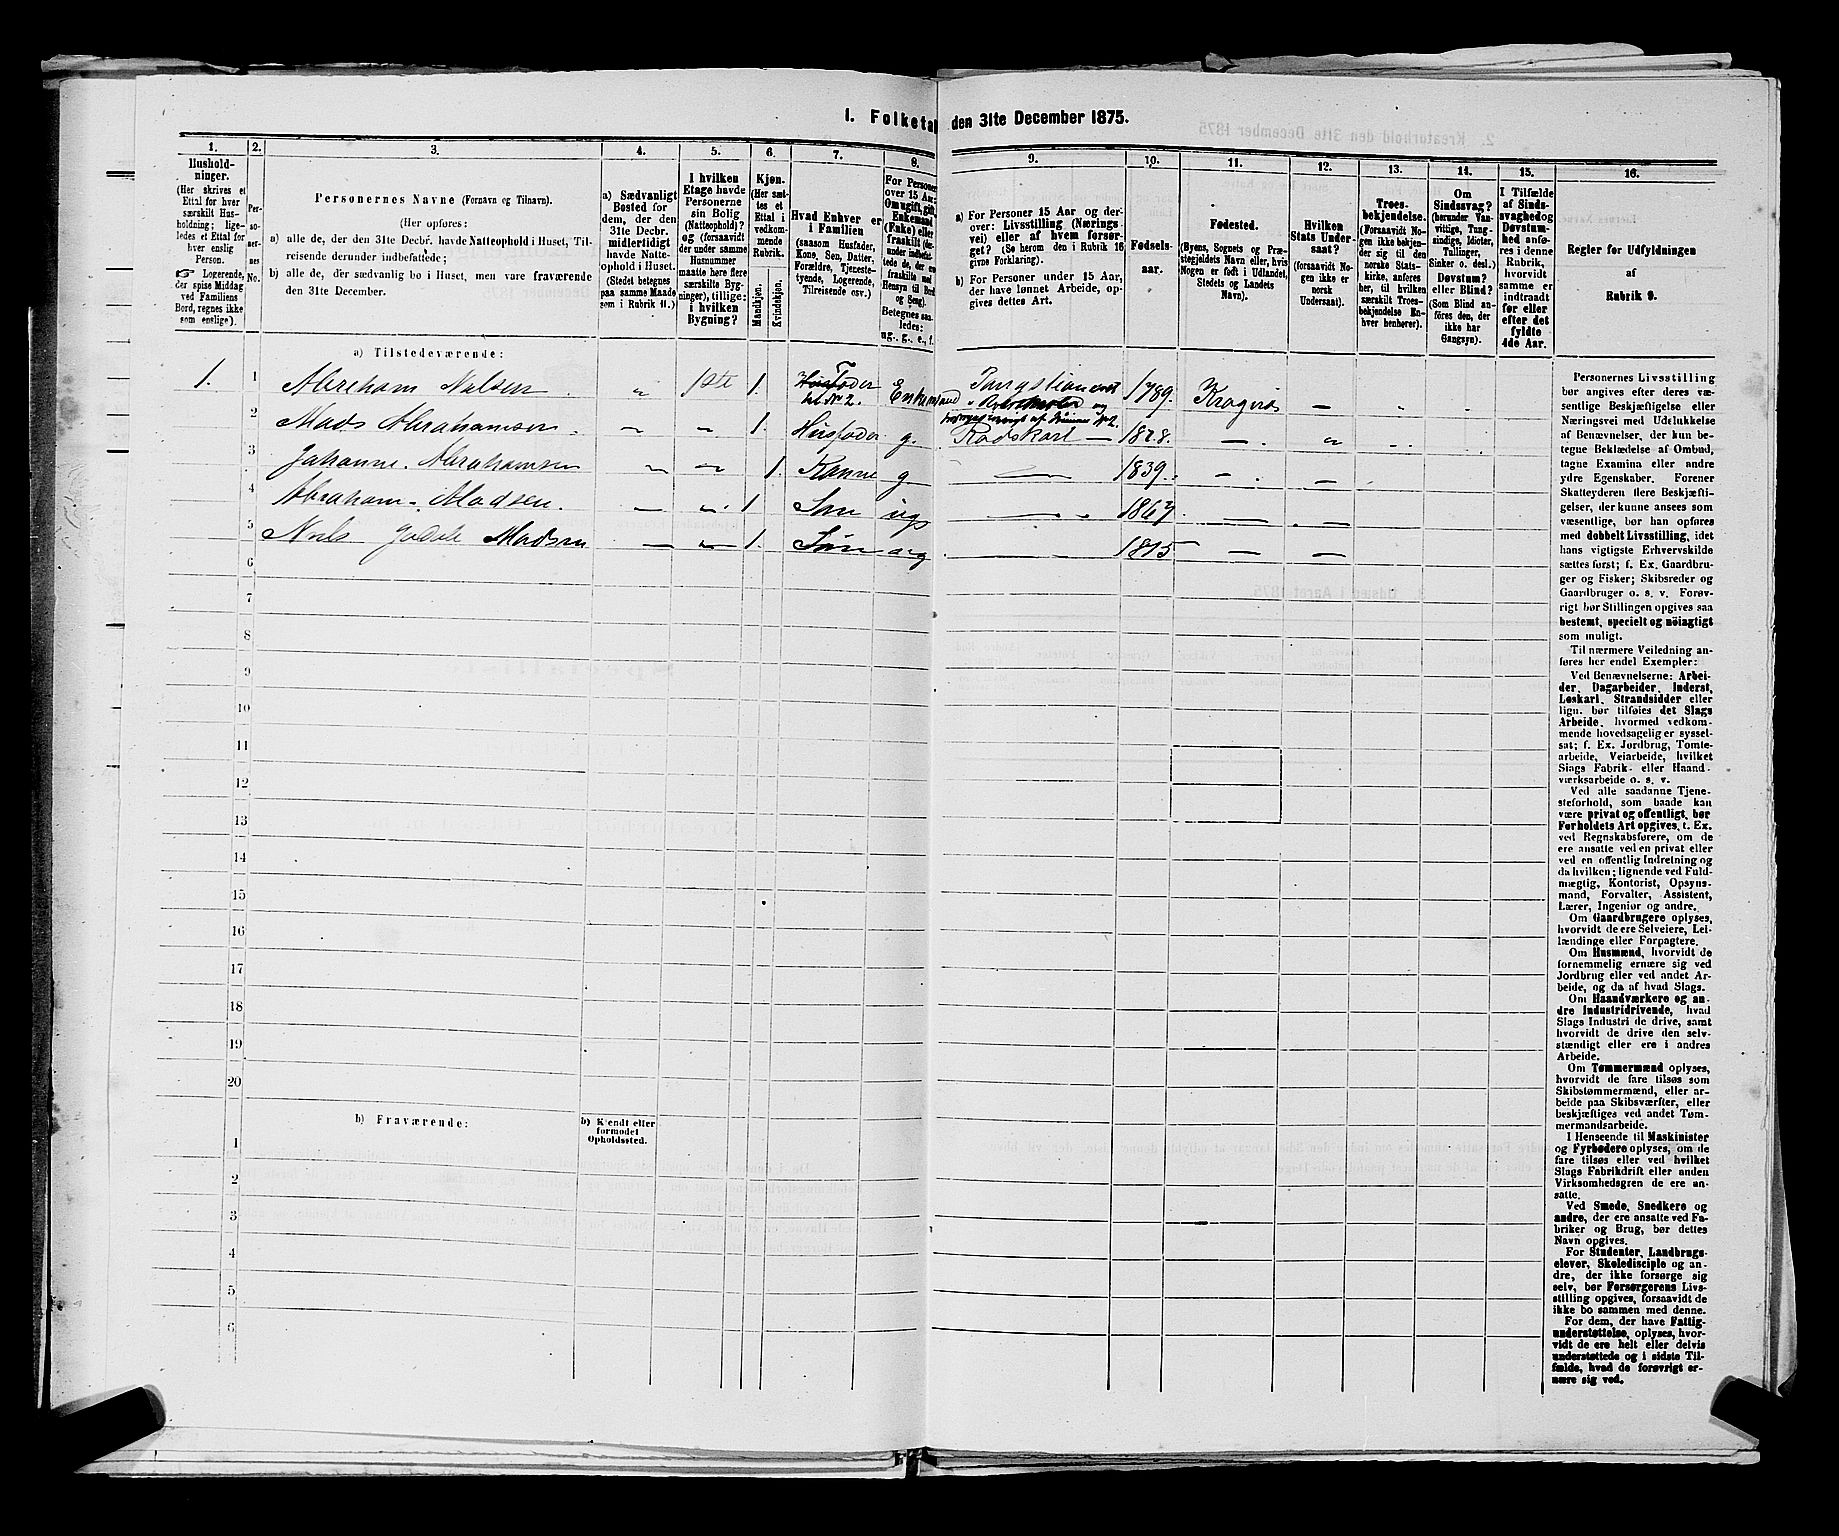 1. Folketal den 31te December 1875.
1.
Husholdninger.
(Her skrives et Ettal for hver særskilt Husholdning; ligeledes et Ettal for hver enslig Person.
☞ Logerende, der spise Middag ved Familiens Bord, regnes ikke som enslige).
2.
Personernes No.
3.
Personernes Navne (Fornavn og Tilnavn).
(Her opføres:
a) alle de, der den 31te Decbr. havde Natteophold i Huset, Tilreisende derunder indbefattede;
b) alle de, der sædvanlig bo i Huset, men vare fraværende den 31te December.
4.
a) Sædvanligt Bosted for dem, der den 31te Decbr. midlertidigt havde Natteophold i Huset. (Stedet betegnes paa samme Maade som i Rubrik 11.)
5.
I hvilken Etage havde Personerne sin Bolig (Natteophold)? og (forsaavidt der under samme Husnummer maatte høre flere særskilte Bygninger), tillige: i hvilken Bygning?
6.
Kjøn.
(Her sættes et Ettal i vedkommende Rubrik.
Mandkjøn.
Kvindekjøn.
7.
Hvad Enhver er i Familien
(saasom Husfader, Kone, Søn, Datter, Forældre, Tjenestetyende, Logerende, Tilreisende osv.)
8.
For Personer over 15 Aar: Om ugift, gift, Enkemand (Enke) eller fraskilt
Betegnes saaledes: ug., g., e., f.
9.
a) For Personer 15 Aar og derover: Livsstilling (Næringsvei) eller af hvem forsørget? (Se herom den i Rubrik 16 givne Forklaring).
b) For Personer under 15 Aar, der have lønnet Arbeide, opgives dettes Art.
10.
Fødselsaar.
11.
Fødested.
(Byens, Sognets og Præstegjeldets Navn eller, hvis Nogen er født i Udlandet, Stedets og Landets Navn).
12.
Hvilken Stats Undersaat?
(forsaavidt Nogen ikke er norsk Undersaat).
13.
Troesbekjendelse.
(Forsaavidt Nogen ikke bekjender sig til den norske Statskirke, anføres her, til hvilken særskilt Troesbekjendelse Enhver henhører).
14.
Om Sindssvag? (herunder Vanvittige, Tungsindige, Idioter, Tullinger, Sinker o. desl.) Døvstum? eller Blind?
(Som Blind anføres den, der ikke har Gangsyn).
15.
I Tilfælde af Sindssvaghed og Døvstumhed anføres i denne Rubrik, hvorvidt samme er indtraadt før eller efter det fyldte 4de Aar.
16.
Regler for Udfyldningen
af
Rubrik 9.
a) Tilstedeværende:
1. 1 Abreham Nilsen 1ste 1. Husfader til No 2. Enkemand 1789. Kragerø
2 Mads Abrahamsen 1. Husfader g. 1828.
3 Johanne Abrahamsen 1. Konne g 1839.
4 Abraham Madsen. 1 Søn ug 1867
5 Nils Madsen 1. Søn ug 1875
6
7
8
9
10
11
12
13
14
15
16
17
18
19
20
b) Fraværende:
b) Kjendt eller formodet Opholdssted.
1
2
3
4
5
6
Personernes Livsstilling
bør angives efter deres væ-
sentlige Beskjæftigelse eller
Næringsvei med Udelukkelse
af Benævnelser, der kun be-
tegne Beklædelse af Ombud,
tagne Examina eller andre
ydre Egenskaber. Forener
Skatteyderen flere Beskjæfti-
gelser, der kunne ansees som
væsentlige, bør han opføres
med dobbelt Livsstilling, idet
hans vigtigste Erhvervskilde
sættes først; f. Ex. Gaardbru-
ger og Fisker; Skibsreder og
Gaardbruger o. s. v. Forøv-
rigt bør Stillingen opgives saa
bestemt, specielt og nöiagtigt
som muligt.
Til nærmere Veiledning an-
føres her endel Exempler:
Ved Benævnelserne: Arbei-
der, Dagarbeider, Inderst,
Løskarl, Strandsidder eller
lign. bør tilføies det Slags
Arbeide, hvormed vedkom-
mende hovedsagelig er syssel-
sat; f. Ex. Jordbrug, Tomte-
arbeide, Veiarbeide, hvilket
Slags Fabrik- eller Haand-
værksarbeide o. s. v.
Ved alle saadanne Tjene-
steforhold, som baade kan
være privat og offentligt, bør
Forholdets Art opgives, t. Ex.
ved Regnskabsførere, om de
ere ansatte ved en privat eller
ved en offentlig Indretning og
da hvilken; lignende ved Fuld-
mægtig, Kontorist, Opsyns-
mand, Forvalter, Assistent,
Lærer, Ingeniør og andre.
Om Gaardbrugere oplyses,
hvorvidt de ere Selveiere, Lei-
lændinge eller Forpagtere.
Om Husmænd, hvorvidt de
fornemmelig ernære sig ved
Jordbrug eller ved andet Ar-
beide, og da af hvad Slags.
Om Haandværkere og an-
dre Industridrivende, hvad
Slags Industri de drive, samt
hvorvidt de drive den selv-
stændigt eller ere i andres
Arbeide.
Om Tømmermænd oplyses,
hvorvidt de fare tilsøs som
Skibstømmermænd, eller ar-
beide paa Skibsværfter, eller
beskjæftiges ved andet Tøm-
mermandsarbeide.
I Henseende til Maskinister
og Fyrbødere oplyses, om de
fare tilsøs eller ved hvilket
Slags Fabrikdrift eller anden
Virksomhedsgren de ere an-
satte.
Ved Smede, Snedkere og
andre, der ere ansatte ved Fa-
briker og Brug, bør dettes
Navn opgives.
For Studenter, Landbrugs-
elever, Skoledisciple og an-
dre, der ikke forsørge sig
selv, bør Forsørgerens Livs-
stilling opgives, forsaavidt de
ikke bo sammen med denne.
For dem, der have Fattig-
understøttelse, oplyses, hvor-
vidt de ere helt eller delvis
understøttede og i sidste Til-
fælde, hvad de forøvrigt er-
nære sig ved.